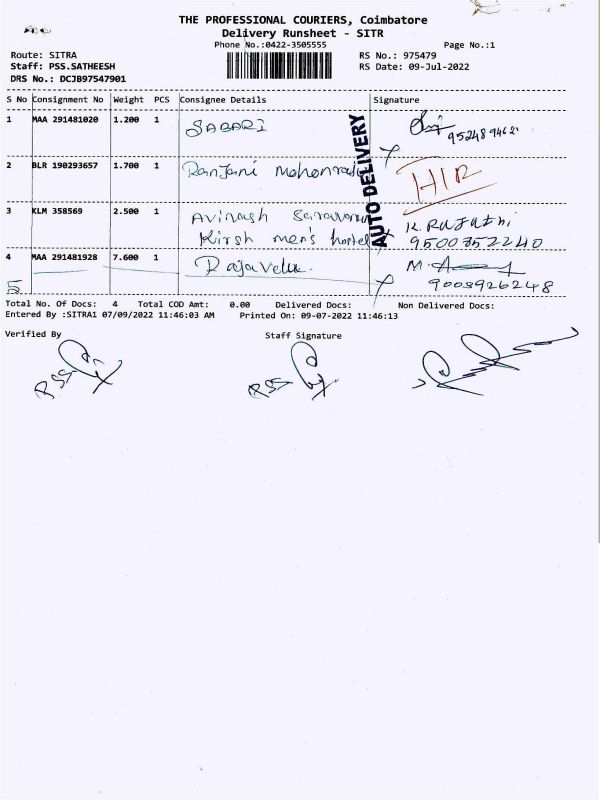 THE PROFESSIONAL COURIERS, Coimbatore
Delivery Runsheet - SITR
Phone No.:0422-3505555 Page No.:1
Route: SITRA RS No.: 975479
Staff: PSS.SATHEESH RS Date: 09-Jul-2022
DRS No.: DCJB97547901
S No Consignment No Weight PCS Consignee Details Signature
1 MAA 291481020 1.200 1 SABARI
2 BLR 190293657 1.700 1 Ranjani
AUTO DELIVERY
3 KLM 358569 2.500 1 Avinash
Kirsh men's hostel 9500852240
4 MAA 291481928 7.600 1 Rajavelu. 9003926248
5
Total No. Of Docs: 4 Total COD Amt: 0.00 Delivered Docs: Non Delivered Docs:
Entered By :SITRA1 07/09/2022 11:46:03 AM Printed On: 09-07-2022 11:46:13
Verified By Staff Signature
PSS PSS